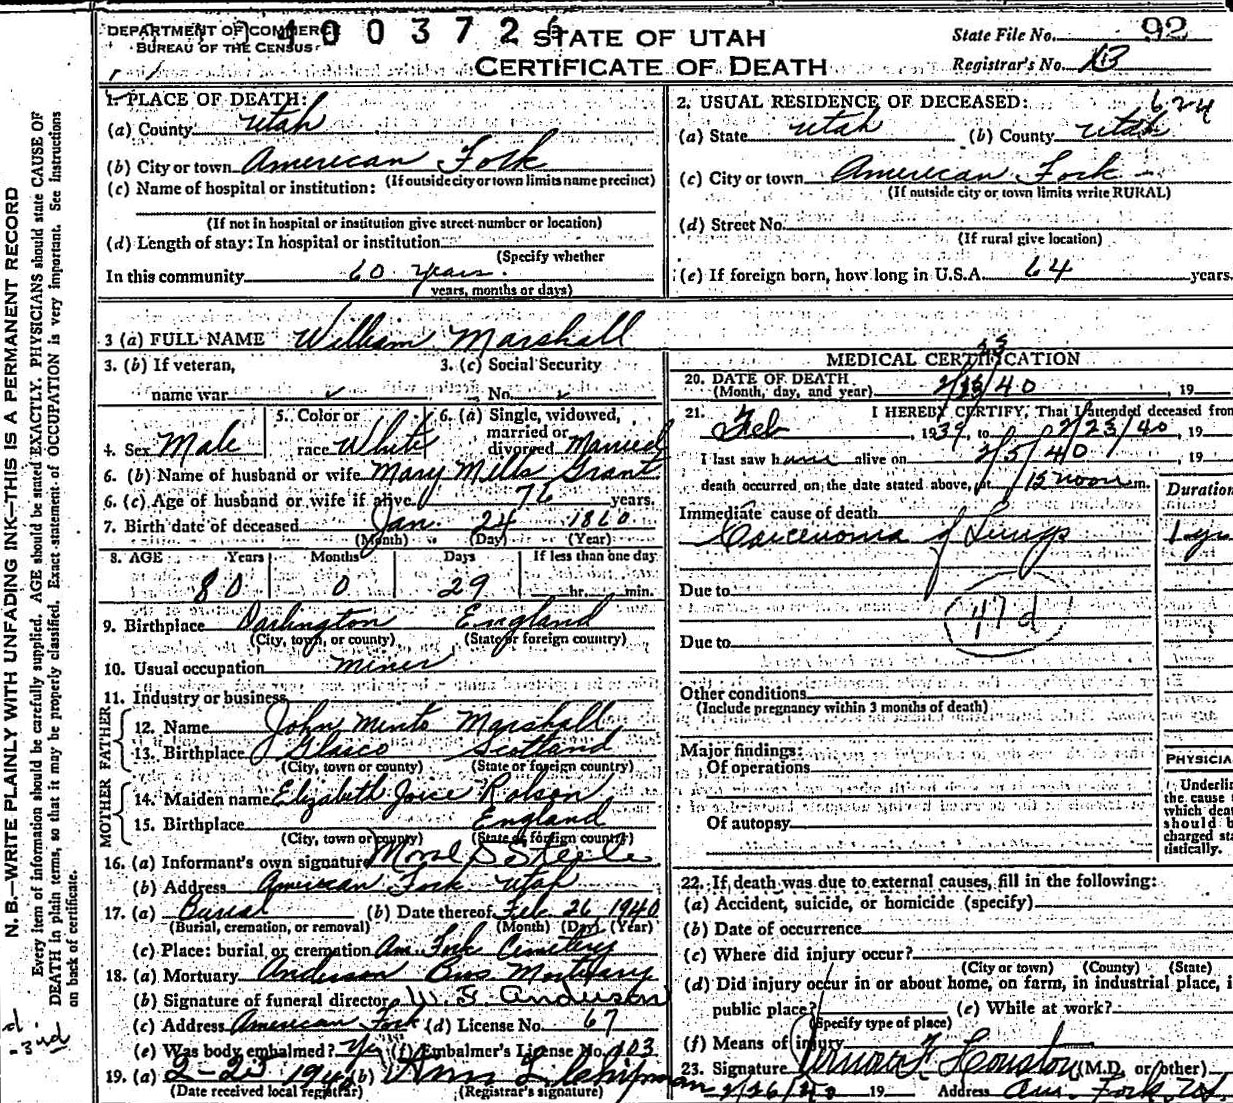 DEPARTMENT OF COMMERCE
BUREAU OF THE CENSUS
400372
STATE OF UTAH
CERTIFICATE OF DEATH
State File No. 92
Registrar's No.
1. PLACE OF DEATH:
(a) County Utah
(b) City or town American Fork
(If outside city or town limits name precinct)
(c) Name of hospital or institution:
(If not in hospital or institution give street number or location)
(d) Length of stay: In hospital or institution
(Specify whether
In this community 60 years.
years, months or days)
2. USUAL RESIDENCE OF DECEASED: 624
(a) State Utah (b) County Utah
(c) City or town American Fork
(If outside city or town limits write RURAL)
(d) Street No.
(If rural give location)
(e) If foreign born, how long in U.S.A. 64 years.
3 (a) FULL NAME William Marshall
3. (b) If veteran, 3. (c) Social Security
name war No.
4. Sex Male 5. Color or race White 6. (a) Single, widowed, married or divorced Married
6. (b) Name of husband or wife Mary Mills Grant
6. (c) Age of husband or wife if alive 76 years.
7. Birth date of deceased Jan. 24 1860
(Month) (Day) (Year)
8. AGE Years Months Days If less than one day
80 0 29 hr. min.
9. Birthplace Darlington England
(City, town, or county) (State or foreign country)
10. Usual occupation miner
11. Industry or business
FATHER
12. Name John Minto Marshall
13. Birthplace Glasco Scotland
(City, town or county) (State or foreign country)
MOTHER
14. Maiden name Elizabeth Joice Robson
15. Birthplace England
(City, town or county) (State or foreign country)
16. (a) Informant's own signature S Steele
(b) Address American Fork Utah
17. (a) Burial (b) Date thereof Feb. 26, 1940
(Burial, cremation, or removal) (Month) (Day) (Year)
(c) Place: burial or cremation Am. Fork Cemetery
18. (a) Mortuary Anderson Bros Mortuary
(b) Signature of funeral director W. F. Anderson
(c) Address American Fork (d) License No. 67
(e) Was body embalmed? Yes (f) Embalmer's License No. 103
19. (a) 2-23 1940 (b) Chipman
(Date received local registrar) (Registrar's signature)
MEDICAL CERTIFICATION
20. DATE OF DEATH 2/23/40, 19
(Month, day, and year)
21. I HEREBY CERTIFY, That I attended deceased from
Feb, 1939, to 2/23/40, 19
I last saw him alive on 2/5/40, 19
death occurred on the date stated above, at 12 noon m.
Duration
Immediate cause of death
Carcenoma of Lungs 1 yr
Due to
47d
Due to
Other conditions
(Include pregnancy within 3 months of death)
Major findings:
Of operations
Of autopsy
PHYSICIA
Underlin
the cause
which deat
should b
charged sta
tistically.
22. If death was due to external causes, fill in the following:
(a) Accident, suicide, or homicide (specify)
(b) Date of occurrence
(c) Where did injury occur?
(City or town) (County) (State)
(d) Did injury occur in or about home, on farm, in industrial place, i
public place? (e) While at work?
(Specify type of place)
(f) Means of injury
23. Signature Vernon F Houston (M.D. or other)
2/26/40 19 Address Am. Fork, Ut.
N.B.—WRITE PLAINLY WITH UNFADING INK—THIS IS A PERMANENT RECORD
Every item of information should be carefully supplied. AGE should be stated EXACTLY. PHYSICIANS should state CAUSE OF
DEATH in plain terms, so that it may be properly classified. Exact statement of OCCUPATION is very important. See Instructions
on back of certificate.